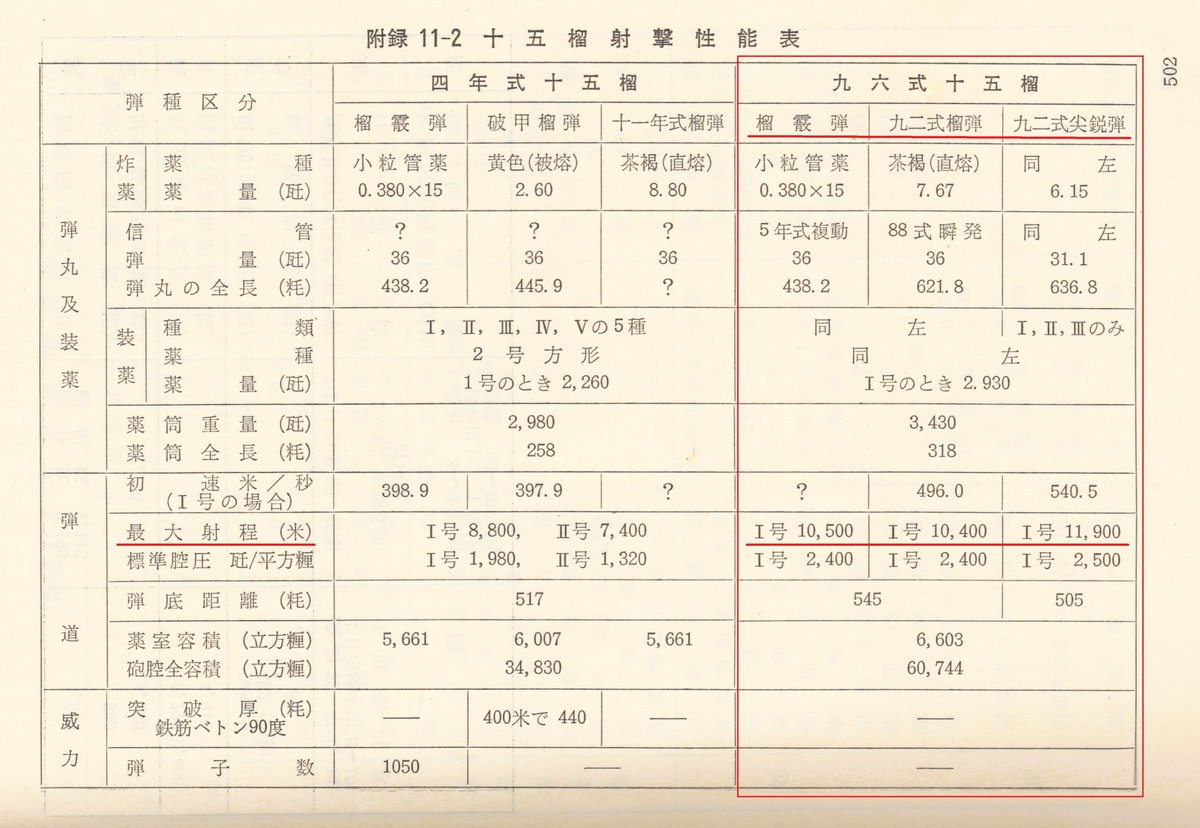 附録 11-2 十五榴射撃性能表
502
弾種区分 四年式十五榴 九六式十五榴
榴霰弾 破甲榴弾 十一年式榴弾 榴霰弾 九二式榴弾 九二式尖鋭弾
弾丸及装薬
炸薬 薬種 小粒管薬 黄色(被熔) 茶褐(直熔) 小粒管薬 茶褐(直熔) 同左
薬量(瓩) 0.380×15 2.60 8.80 0.380×15 7.67 6.15
信管 ? ? ? 5年式複動 88式瞬発 同左
弾量(瓩) 36 36 36 36 36 31.1
弾丸の全長(粍) 438.2 445.9 ? 438.2 621.8 636.8
装薬 種類 Ⅰ, Ⅱ, Ⅲ, Ⅳ, Ⅴの5種 同左 Ⅰ,Ⅱ,Ⅲのみ
薬種 2号方形 同左
薬量(瓩) 1号のとき 2,260 Ⅰ号のとき 2.930
薬筒重量(瓩) 2,980 3,430
薬筒全長(粍) 258 318
弾道
初速米/秒 (Ⅰ号の場合) 398.9 397.9 ? ? 496.0 540.5
最大射程(米) Ⅰ号 8,800, Ⅱ号 7,400 Ⅰ号 10,500 Ⅰ号 10,400 Ⅰ号 11,900
標準腔圧 瓩/平方糎 Ⅰ号 1,980, Ⅱ号 1,320 Ⅰ号 2,400 Ⅰ号 2,400 Ⅰ号 2,500
弾底距離(粍) 517 545 505
薬室容積(立方糎) 5,661 6,007 5,661 6,603
砲腔全容積(立方糎) 34,830 60,744
威力
突破厚(粍) 鉄筋ベトン90度 —— 400米で 440 —— ——
弾子数 1050 —— ——